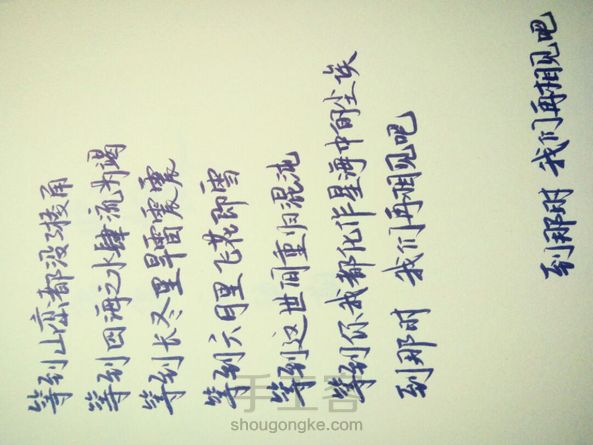 等到山峦都没了棱角
等到四海之水肆流为渴
等到长冬里旱雷震震
等到六月里飞花即雪
等到这世间重归混沌
等到你我都化作星海中的尘埃
到那时 我们再相见吧
到那时 我们再相见吧
手工客
shougongke.com